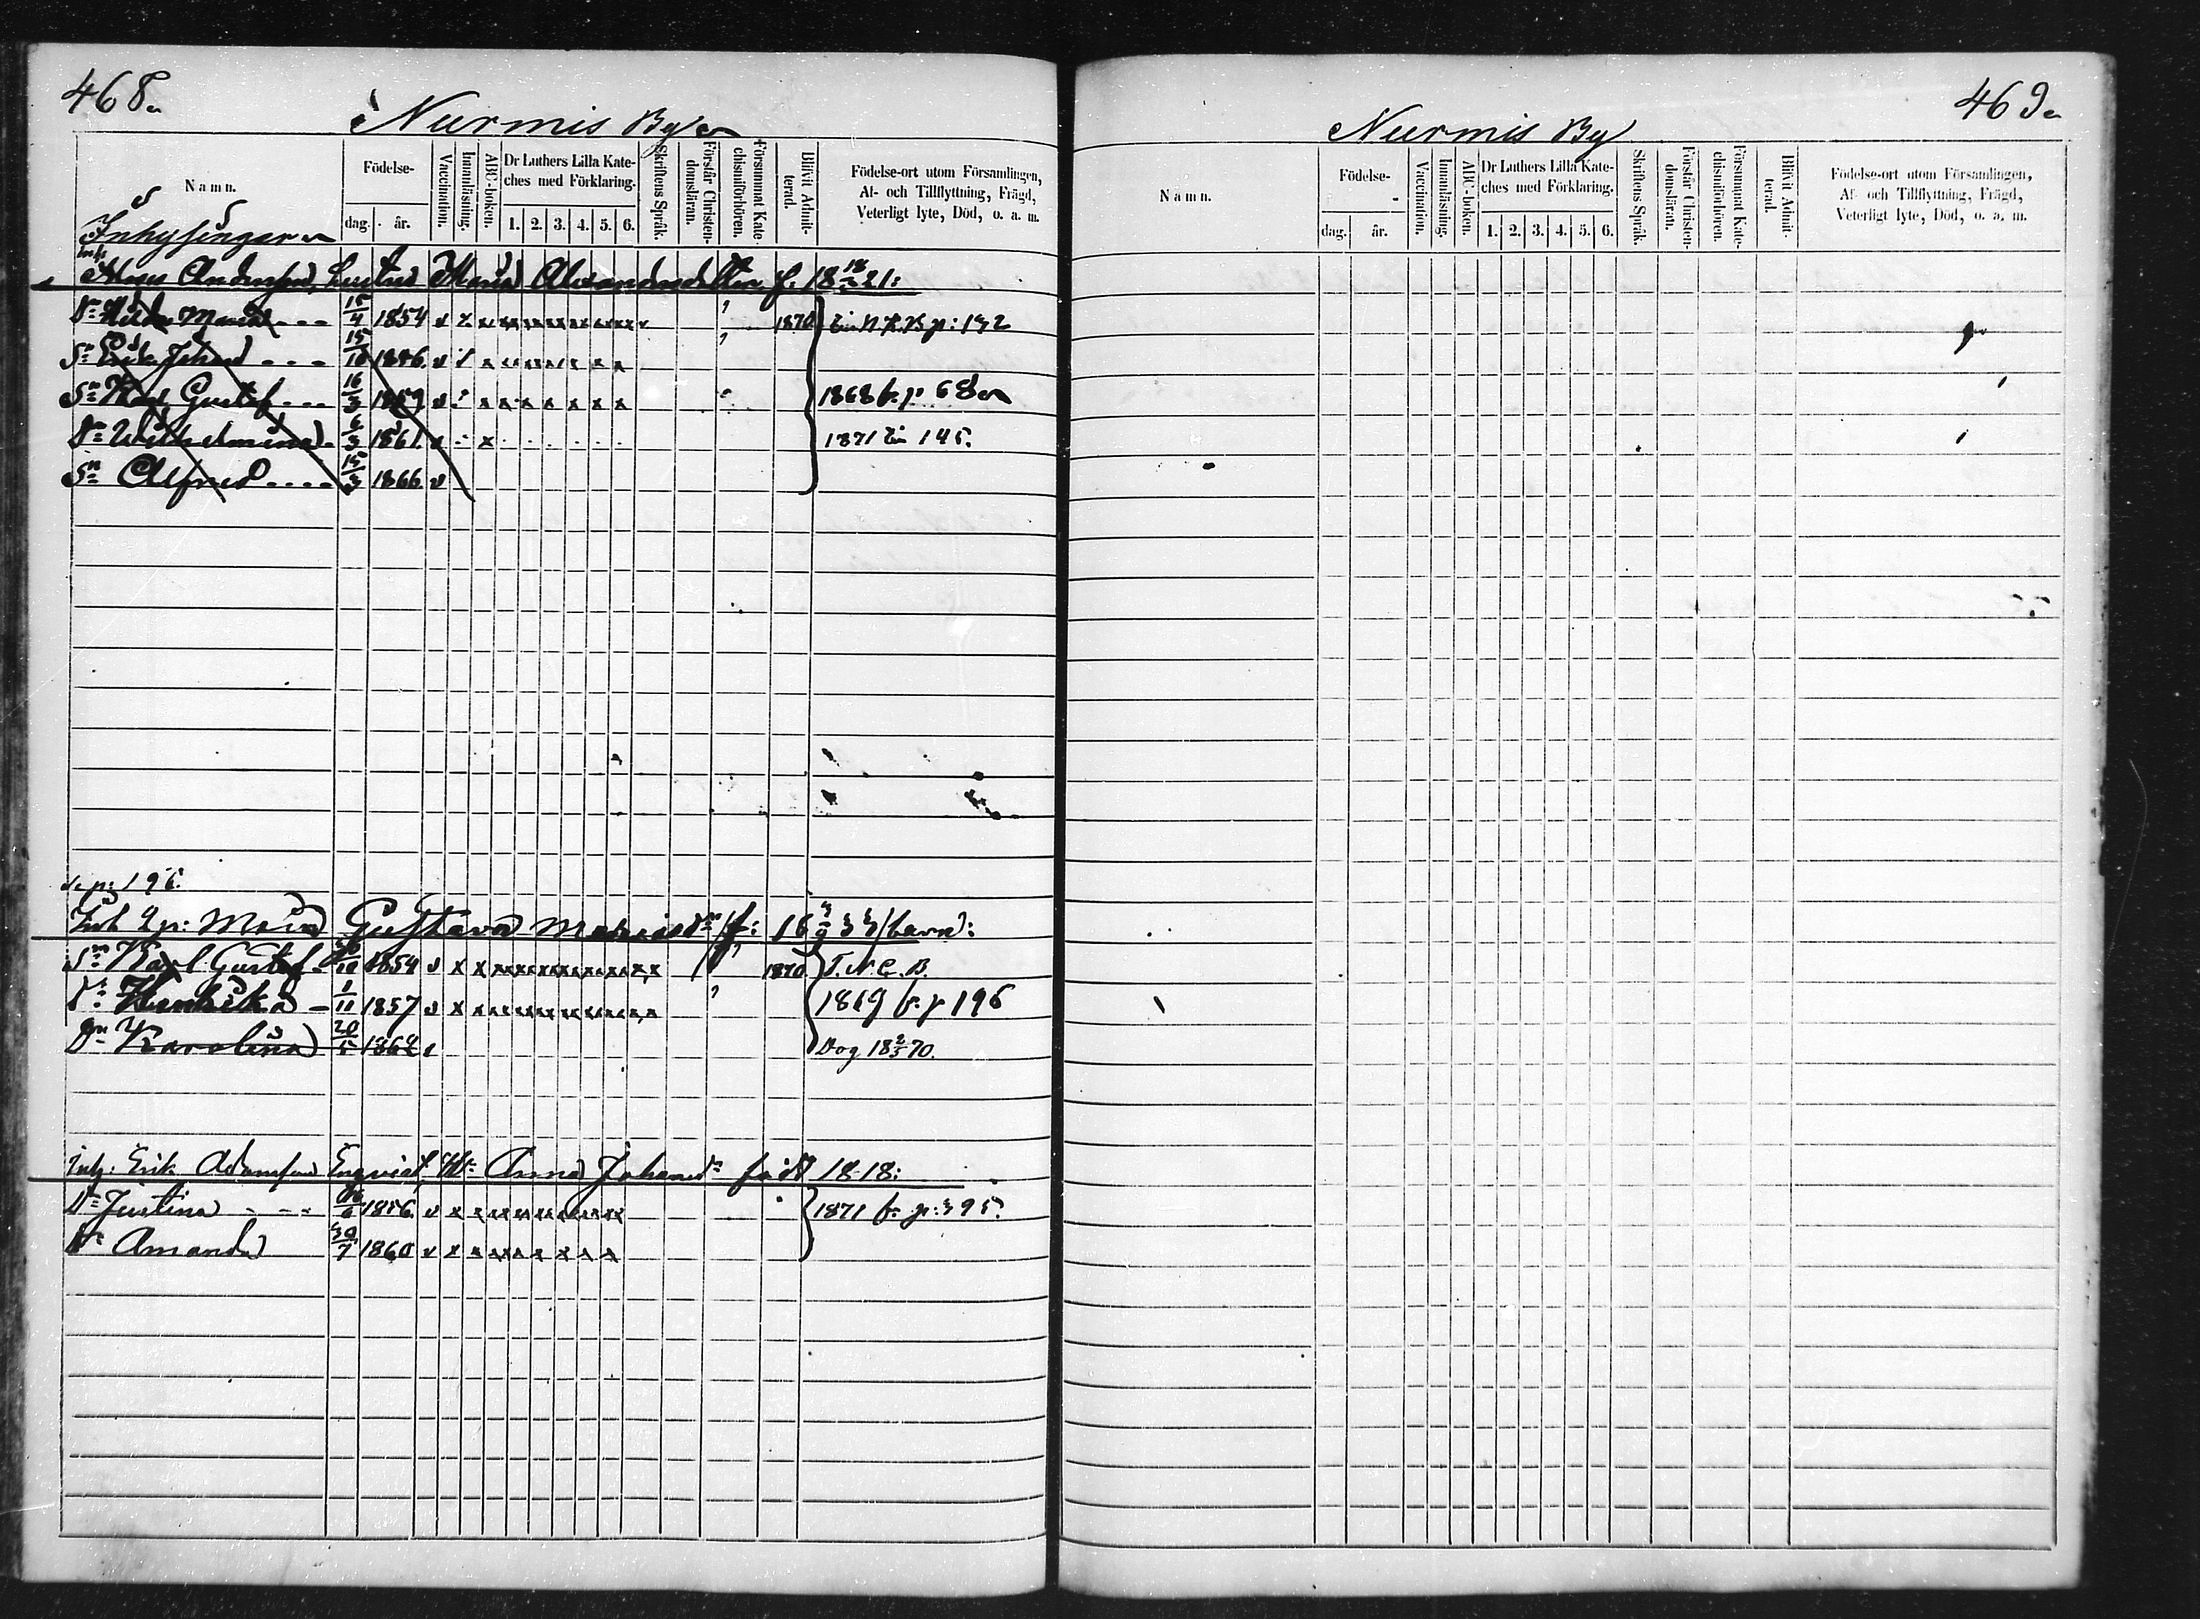 468
Nurmis By
Namn.
Födelse-
dag.
år.
Vaccination.
Innanläsning.
ABC-boken.
Dr Luthers Lilla Kate-
ches med Förklaring.
1. 2. 3. 4. 5. 6.
Skriftens Språk.
Förstår Christen-
domsläran.
Försummat Kate-
chismiförhören.
Blifvit Admit-
terad.
Födelse-ort utom Församlingen,
Af- och Tillflyttning, Frägd,
Veterligt lyte, Död, o. a. m.
Inhysingar
Maria Alexandersdotter f. 18 18/ 21:
Maria 15/4 1854 1870 p: 132
Johan 15/10 1856.
Sn Karl Gustaf 16/3 1859 1868 fr. p 68
Dr Wilhelmina 6/3 1861. 1871 145.
Sn Alfred 15/3 1866.
p: 196.
Maria Gustava f: 18 33/barn:
Sn Karl Gustaf /10 1854 1870 T. N. C. B.
Dr Henrika 1/11 1857 1869 fr. p 196
Dr Karolina 20/5 1868 Dog 18 2/5 70.
Inh. Erik Adamsson Enqvist, Anna född 1818:
Dr Justina /6 1856. 1871 fr. p: 395.
Dr Amanda 30/7 1860
469
Nurmis By
Namn.
Födelse-
dag.
år.
Vaccination.
Innanläsning.
ABC-boken.
Dr Luthers Lilla Kate-
ches med Förklaring.
1. 2. 3. 4. 5. 6.
Skriftens Språk.
Förstår Christen-
domsläran.
Försummat Kate-
chismiförhören.
Blifvit Admit-
terad.
Födelse-ort utom Församlingen,
Af- och Tillflyttning, Frägd,
Veterligt lyte, Död, o. a. m.